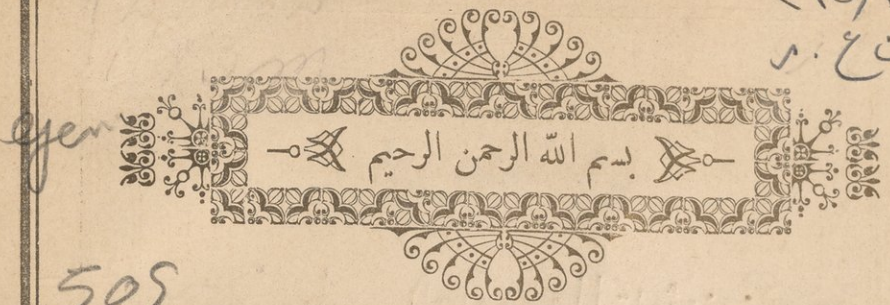 بسم الله الرحمن الرحيم
505